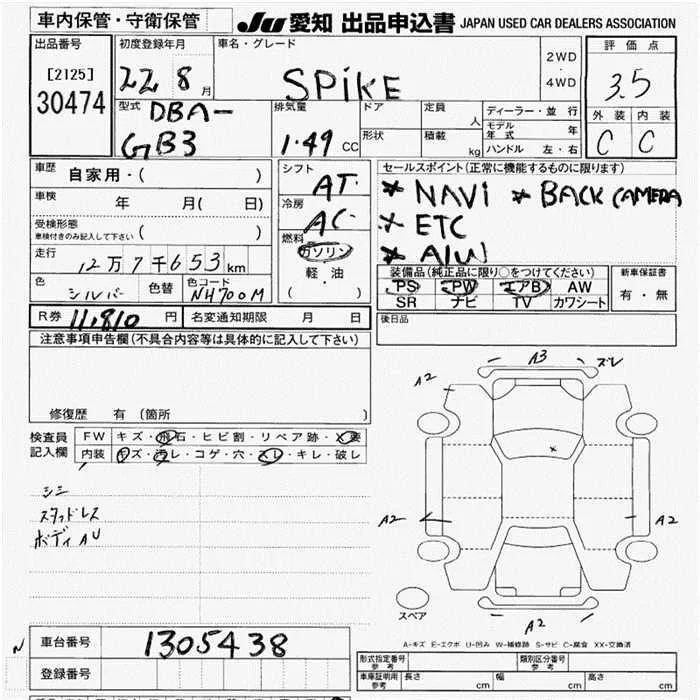 車内保管・守衛保管
JU 愛知 出品申込書 JAPAN USED CAR DEALERS ASSOCIATION
出品番号
[2125]
30474
初度登録年月
22 8月
車名・グレード
SPiKE
2WD
・
4WD
評価点
3.5
外装 内装
C C
型式
DBA-
GB3
排気量
1.49 CC
ドア
定員
人
形状
積載
kg
ディーラー・並行
モデル年式 年
ハンドル 左・右
車歴
自家用・( )
車検
年 月( 日)
受検形態
車検付きのみ記入して下さい ( )
走行
12万7千653km
色
シルバー
色替
色コード
NH700M
シフト
AT
冷房
AC
燃料
ガソリン
軽・油
( ・ )
セールスポイント(正常に機能するものに限ります)
* NAVi * BACK CAMERA
* ETC
* A/W
装備品(純正品に限り○をつけてください)
PS PW エアB AW
SR ナビ TV カワシート
新車保証書
有・無
後日品
R券 11,810 円
名変通知期限 月 日
注意事項申告欄(不具合内容等は具体的に記入して下さい)
修復歴 有 (箇所 )
検査員
記入欄
FW キズ・飛石・ヒビ割・リペア跡・X要
内装 キズ・汚レ・コゲ・穴・スレ・キレ・破レ
シミ
スタッドレス
ボディAU
A3
ズレ
A2
A2
A2
スペア
A2
A-キズ E-エクボ U-凹み W-補修跡 S-サビ C-腐食 XX-交換済
N
車台番号
1305438
登録番号
形式指定番号
参考
類別区分番号
参考
車庫証明用
参考
長さ cm
幅 cm
高さ cm